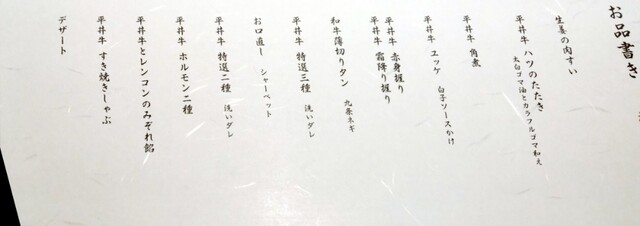 お品書き
生姜の肉すい
平井牛 ハツのたたき
太白ゴマ油とカラフルゴマ和え
平井牛 角煮
平井牛 ユッケ 白子ソースかけ
平井牛 赤身握り
平井牛 霜降り握り
和牛薄切りタン 九条ネギ
平井牛 特選三種 洗いダレ
お口直し シャーベット
平井牛 特選二種 洗いダレ
平井牛 ホルモン二種
平井牛とレンコンのみぞれ餡
平井牛 すき焼きしゃぶ
デザート